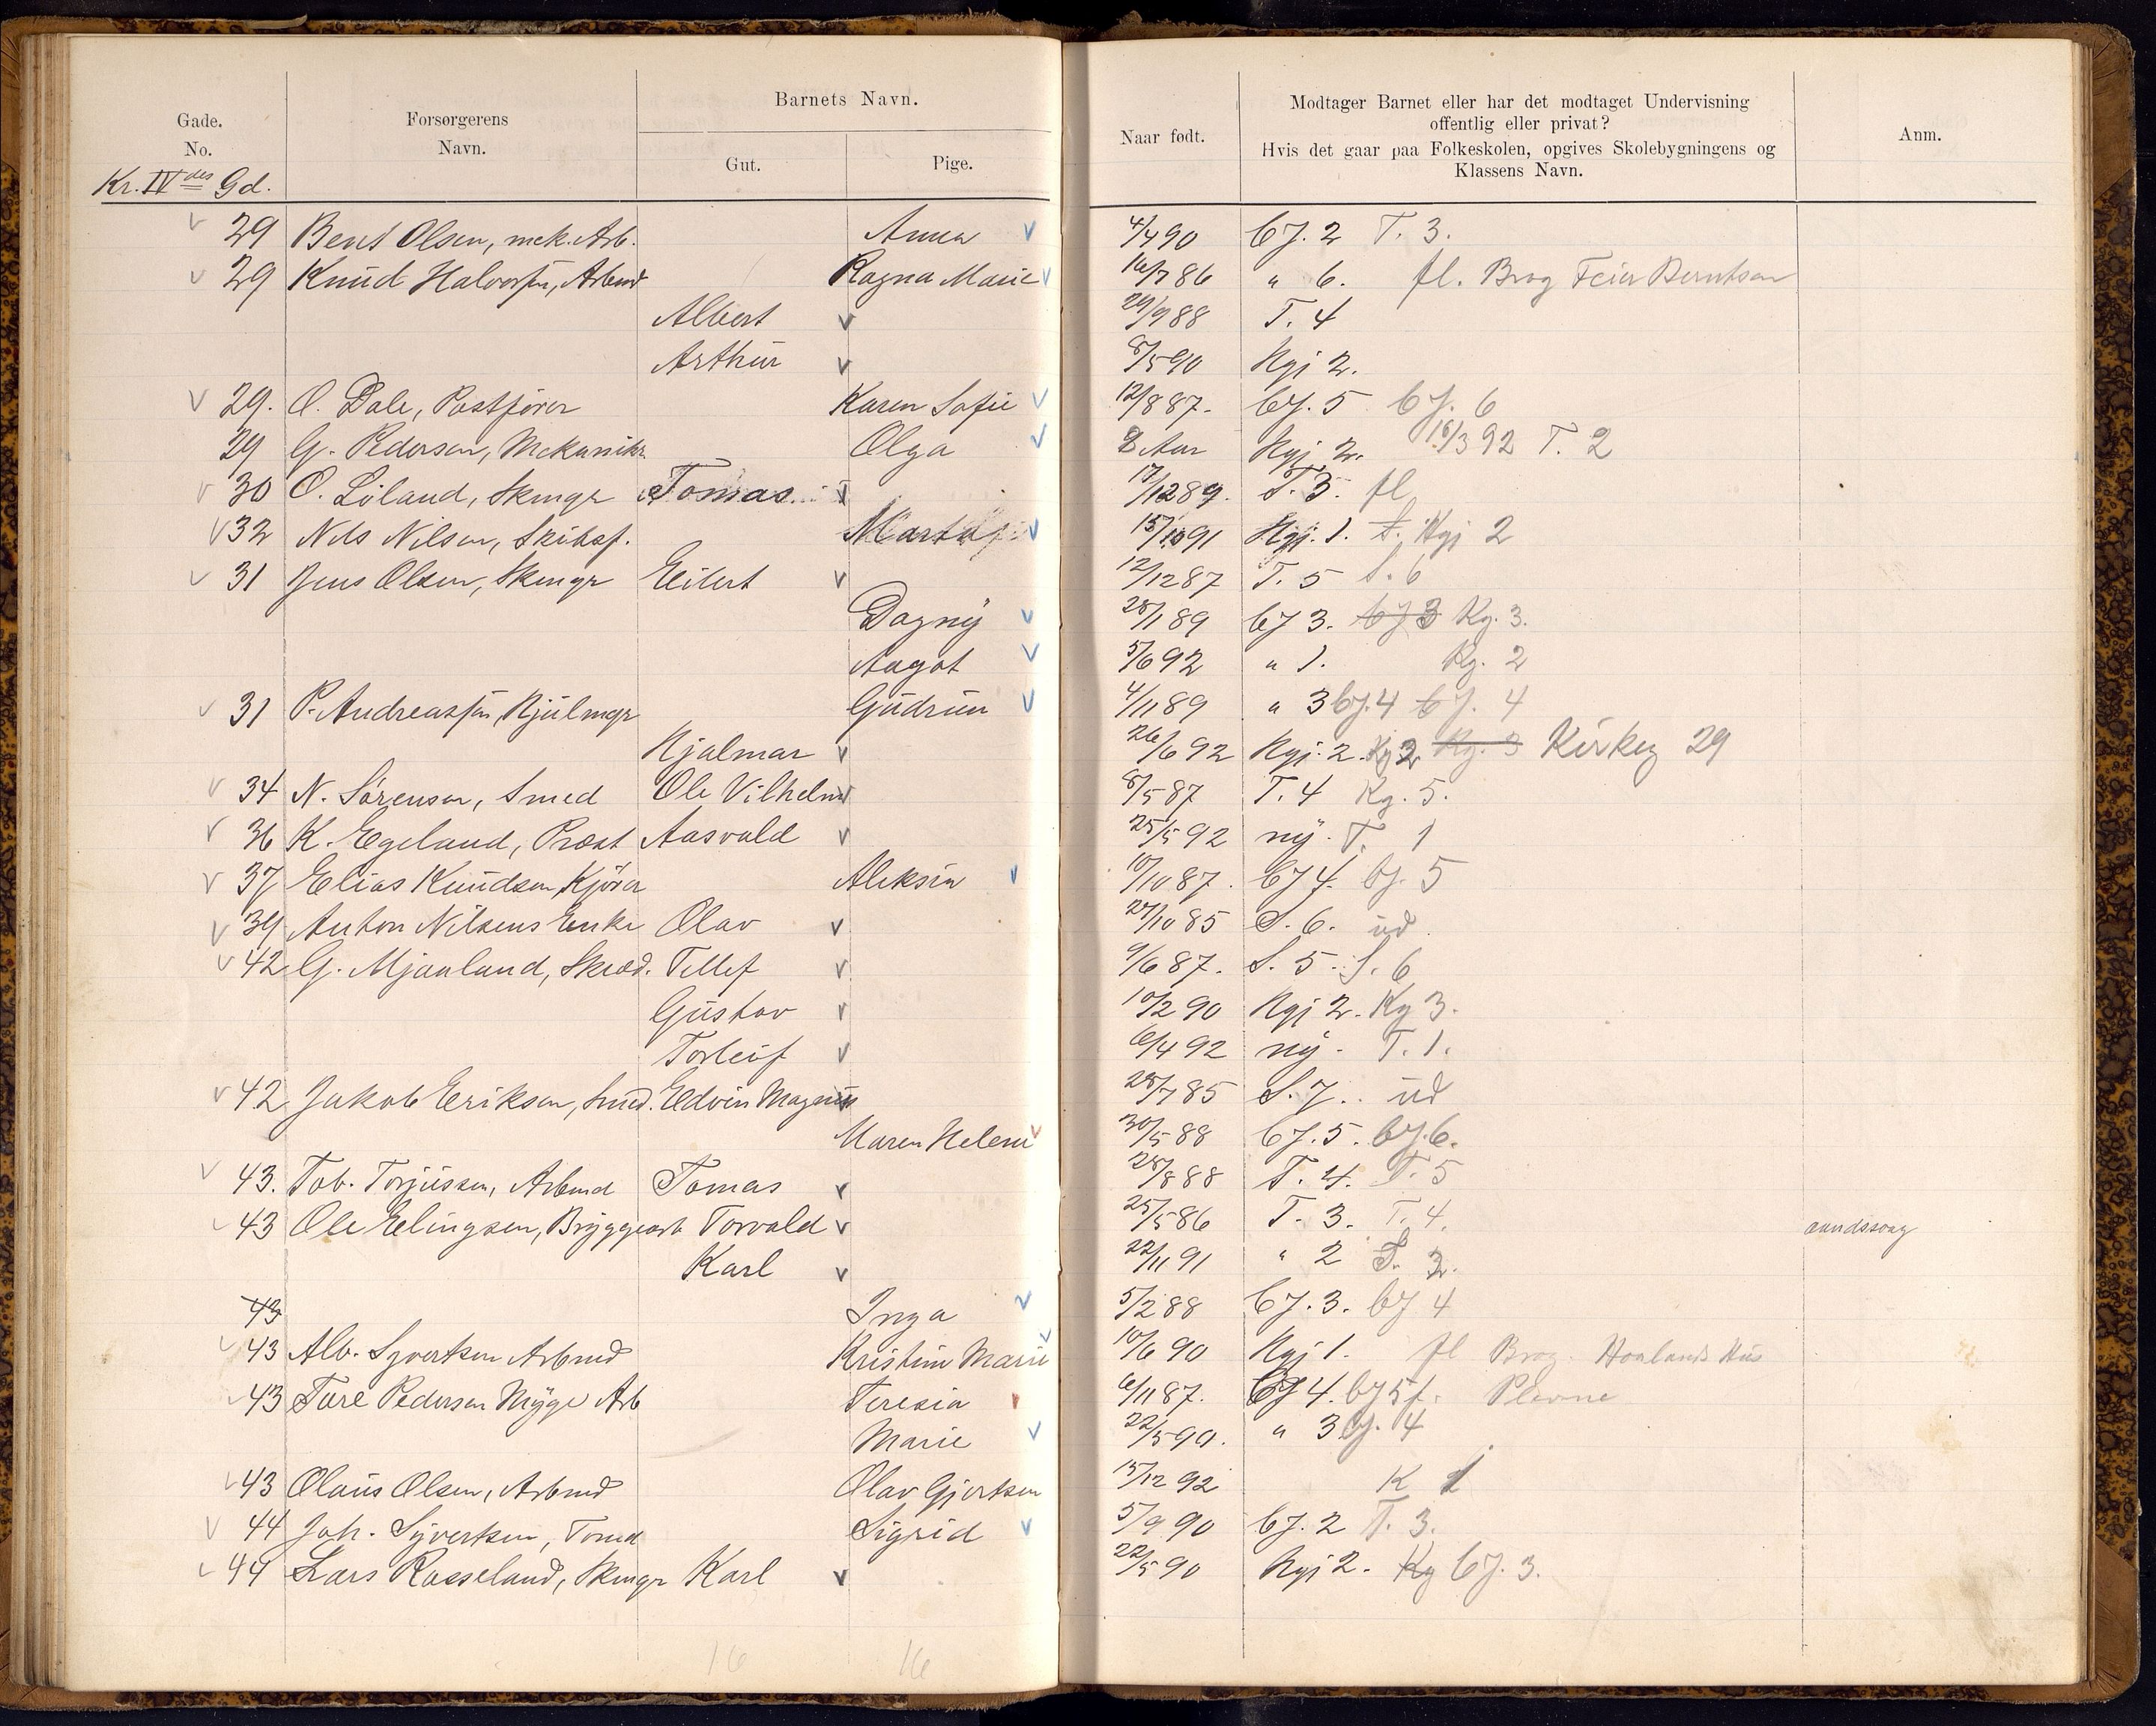 Gade.
No.
Forsørgerens
Navn.
Barnets Navn.
Gut.
Pige.
Naar født.
Modtager Barnet eller har det modtaget Undervisning
offentlig eller privat?
Hvis det gaar paa Folkeskolen, opgives Skolebygningens og
Klassens Navn.
Anm.
Kr. IV des Gd.
29 Bent Olsen, mek. Arb. Anna 4/4 90 bJ. 2 T. 3.
29 Knud Halvorsen, Arbmd Ragna Marie 16/7 86 " 6. fl. Brog Feier Berntsen
Albert 29/9 88 T. 4
Arthur 8/5 90 Kgj 2.
29. O. Dale, Postfører Karen Sofie 12/8 87. bJ. 5 bJ. 6
29 G. Pedersen, Mekanikr Olga 8 Aar Kgj 2. 16/3 92 T. 2
30 O. Löland, Skmgr Tomas 17/12 89. T. 3. fl
32 Nils Nilsen, Skibsf. Marta 15/10 91 Kgj. 1. Kgj 2
31 Jens Olsen, Skmgr Eilert 12/12 87 T. 5 S. 6
Dagny 28/1 89 bJ 3. bJ 3 Kg. 3.
Aagot 5/6 92 " 1. Kg. 2
31 P. Andreassen, Hjulmgr Gudrun 4/11 89 " 3 bJ. 4 bJ. 4
Hjalmar 26/6 92 Kgj. 2. Kg 2 Kg. 3 Kirkeg 29
34 N. Sørensen, Smed Ole Vilhelm 8/5 87 T. 4 Kg. 5.
36 K. Egeland, Præst Aasvald 25/5 92 ny. T. 1
37 Elias Knudsen, Kjører Aleksia 10/10 87. bJ 4. bJ. 5
39 Anton Nilsens Enke Olav 27/10 85 S. 6. ud.
42 G. Mjaaland, Skræd. Tellef 9/6 87. S. 5. S. 6
Gustav 10/2 90 Kgj 2. Kg 3.
Torleif 6/4 92 ny. T. 1.
42 Jakob Eriksen, Smd. Edvin Magnus 28/7 85 S. 7. ud
Maren Helene 30/5 88 bJ. 5. bJ. 6.
43. Tob. Torjussen, Arbmd Tomas 28/8 88 T. 4. T. 5
43 Ole Elingsen, Bryggearb Torvald 25/5 86 T. 3. T. 4. aandssvag
Karl 22/11 91 " 2 T. 2.
43 Inga 5/2 88 bJ. 3. bJ 4
43 Alb. Syvertsen Arbmd Kristine Marie 10/6 90 Kgj 1. fl Brog. Haalands Hus
43 Tore Pedersen Myge Arb Teresia 6/11 87. bJ 4. bJ 5 f. Plevne
Marie 22/5 90. " 3 bJ. 4
43 Olaus Olsen, Arbmd Olav Gjertsen 15/12 92 K 1
44 Joh. Syvertsen, Tømd Sigrid 5/9 90 bJ. 2 T. 3.
44 Lars Rosseland, Skmgr Karl 22/5 90 Kgj 2. Kg bJ. 3.
16 16